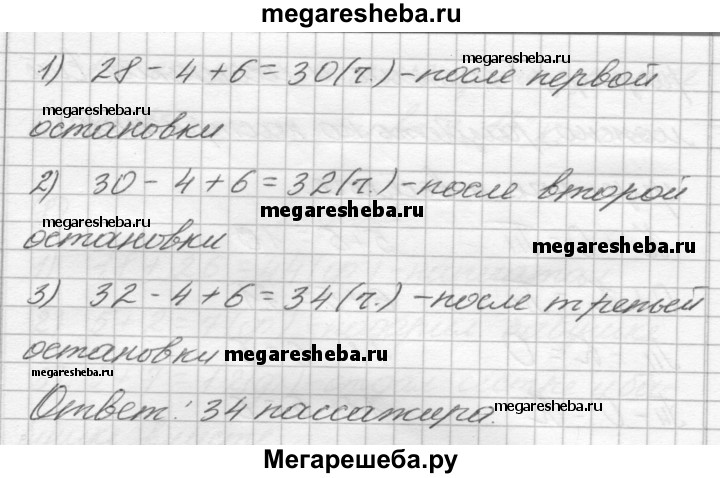 megaresheba.ru
1) 28 - 4 + 6 = 30 (ч.) - после первой
megaresheba.ru
megaresheba.ru
остановки
2) 30 - 4 + 6 = 32 (ч.) - после второй
megaresheba.ru
megaresheba.ru
остановки
megaresheba.ru
3) 32 - 4 + 6 = 34 (ч.) - после третьей
остановки
megaresheba.ru
megaresheba.ru
Ответ: 34 пассажира.
megaresheba.ru
Мегарешеба.ру